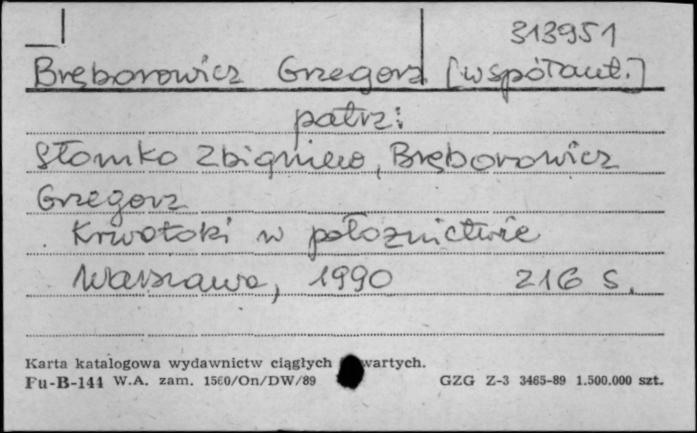 313951
Bręborowicz Grzegorz [współaut.]
patrz:
Słomko Zbigniew, Bręborowicz
Grzegorz
Krwotoki w położnictwie
Warszawa, 1990 216 s.
Karta katalogowa wydawnictw ciągłych wartych.
Fu-B-144 W.A. zam. 1560/On/DW/89 GZG Z-3 3465-89 1.500.000 szt.